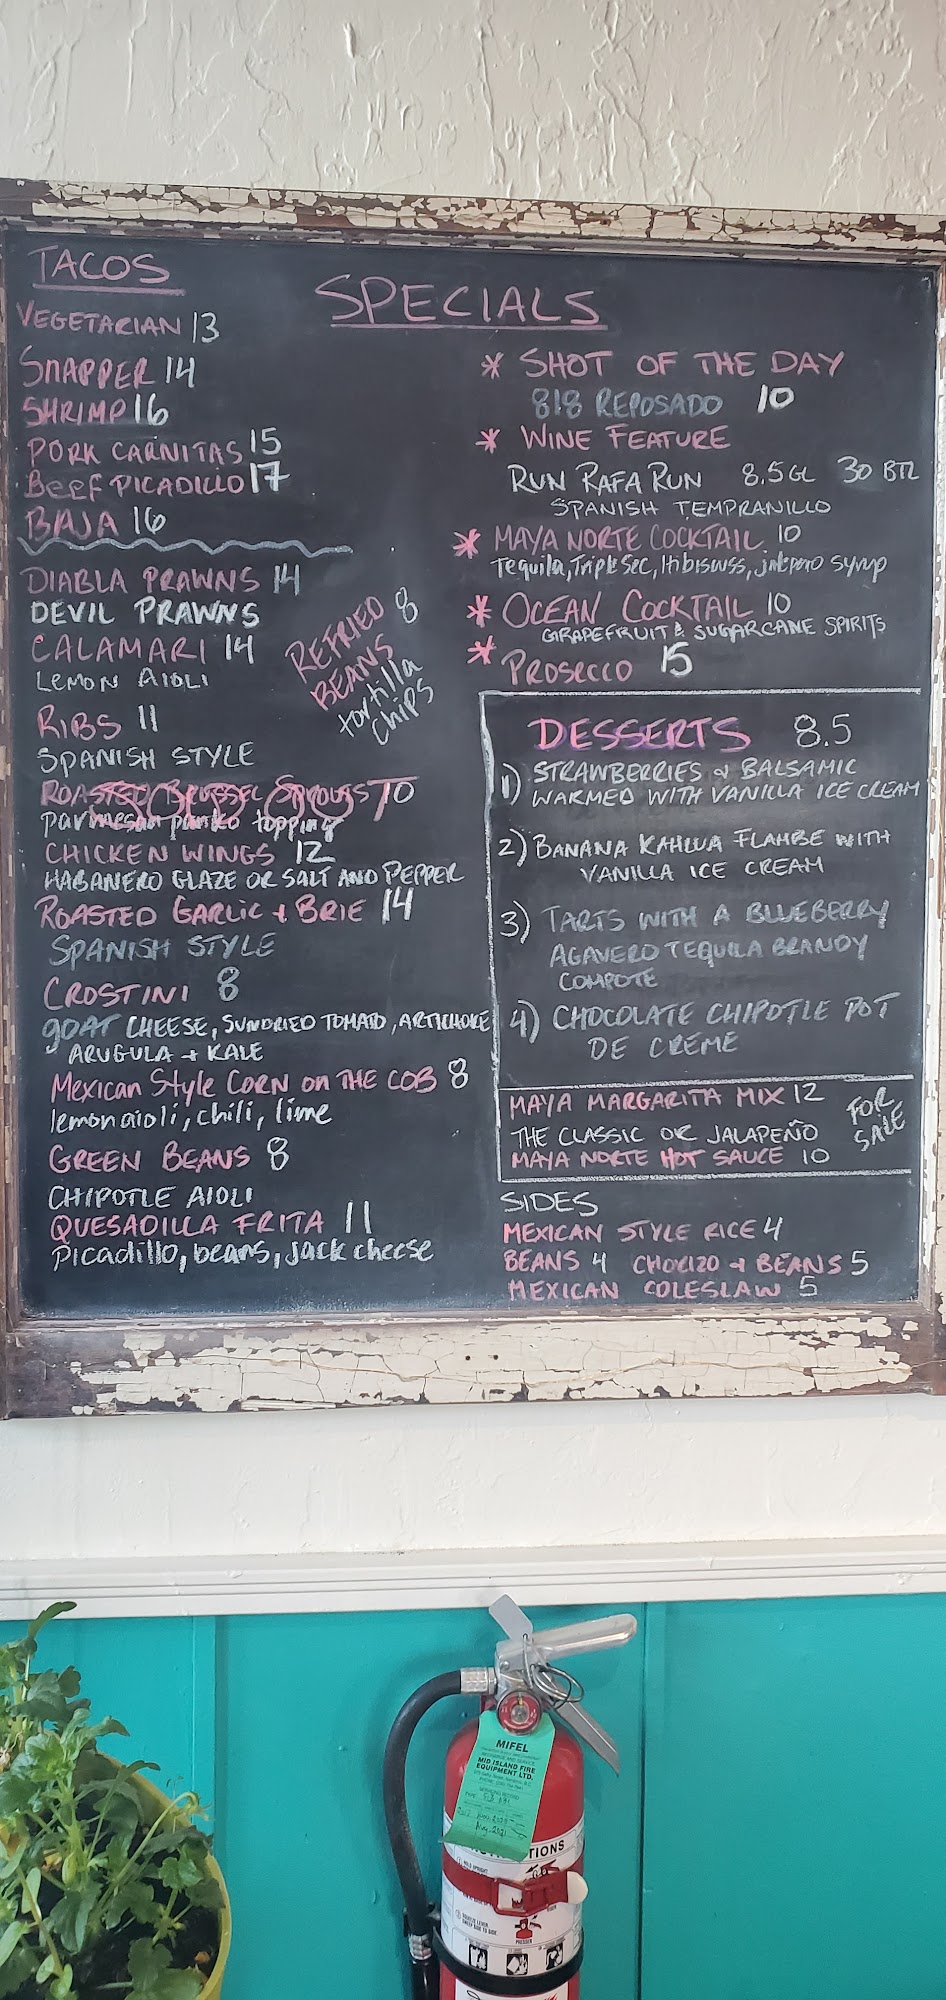 TACOS
VEGETARIAN 13
SNAPPER 14
SHRIMP 16
PORK CARNITAS 15
BEEF PICADILLO 17
BAJA 16
DIABLA PRAWNS 14
DEVIL PRAWNS
CALAMARI 14
LEMON AIOLI
REFRIED 8
BEANS
tortilla
CHIPS
RIBS 11
SPANISH STYLE
ROASTED BRUSSEL SPROUTS 10
SOLD OUT
parmesan panko topping
CHICKEN WINGS 12
HABANERO GLAZE OR SALT AND PEPPER
ROASTED GARLIC + BRIE 14
SPANISH STYLE
CROSTINI 8
GOAT CHEESE, SUNDRIED TOMATO, ARTICHOKE
ARUGULA + KALE
Mexican Style CORN on THE COB 8
lemon aioli, chili, lime
GREEN BEANS 8
CHIPOTLE AIOLI
QUESADILLA FRITA 11
Picadillo, beans, jack cheese
SPECIALS
* SHOT OF THE DAY
818 REPOSADO 10
* WINE FEATURE
RUN RAFA RUN 8.5 GL 30 BTL
SPANISH TEMPRANILLO
* MAYA NORTE COCKTAIL 10
Tequila, Triple Sec, Hibiscuss, jalepeno syrup
* OCEAN COCKTAIL 10
GRAPEFRUIT & SUGARCANE SPIRITS
* PROSECCO 15
DESSERTS 8.5
1) STRAWBERRIES + BALSAMIC
WARMED WITH VANILLA ICE CREAM
2) BANANA KAHLUA FLAMBE WITH
VANILLA ICE CREAM
3) TARTS WITH A BLUEBERRY
AGAVERO TEQUILA BRANDY
COMPOTE
4) CHOCOLATE CHIPOTLE POT
DE CREME
MAYA MARGARITA MIX 12
THE CLASSIC OR JALAPEÑO
MAYA NORTE HOT SAUCE 10
FOR
SALE
SIDES
MEXICAN STYLE RICE 4
BEANS 4 CHORIZO + BEANS 5
MEXICAN COLESLAW 5
MIFEL
MID ISLAND FIRE
EQUIPMENT LTD.